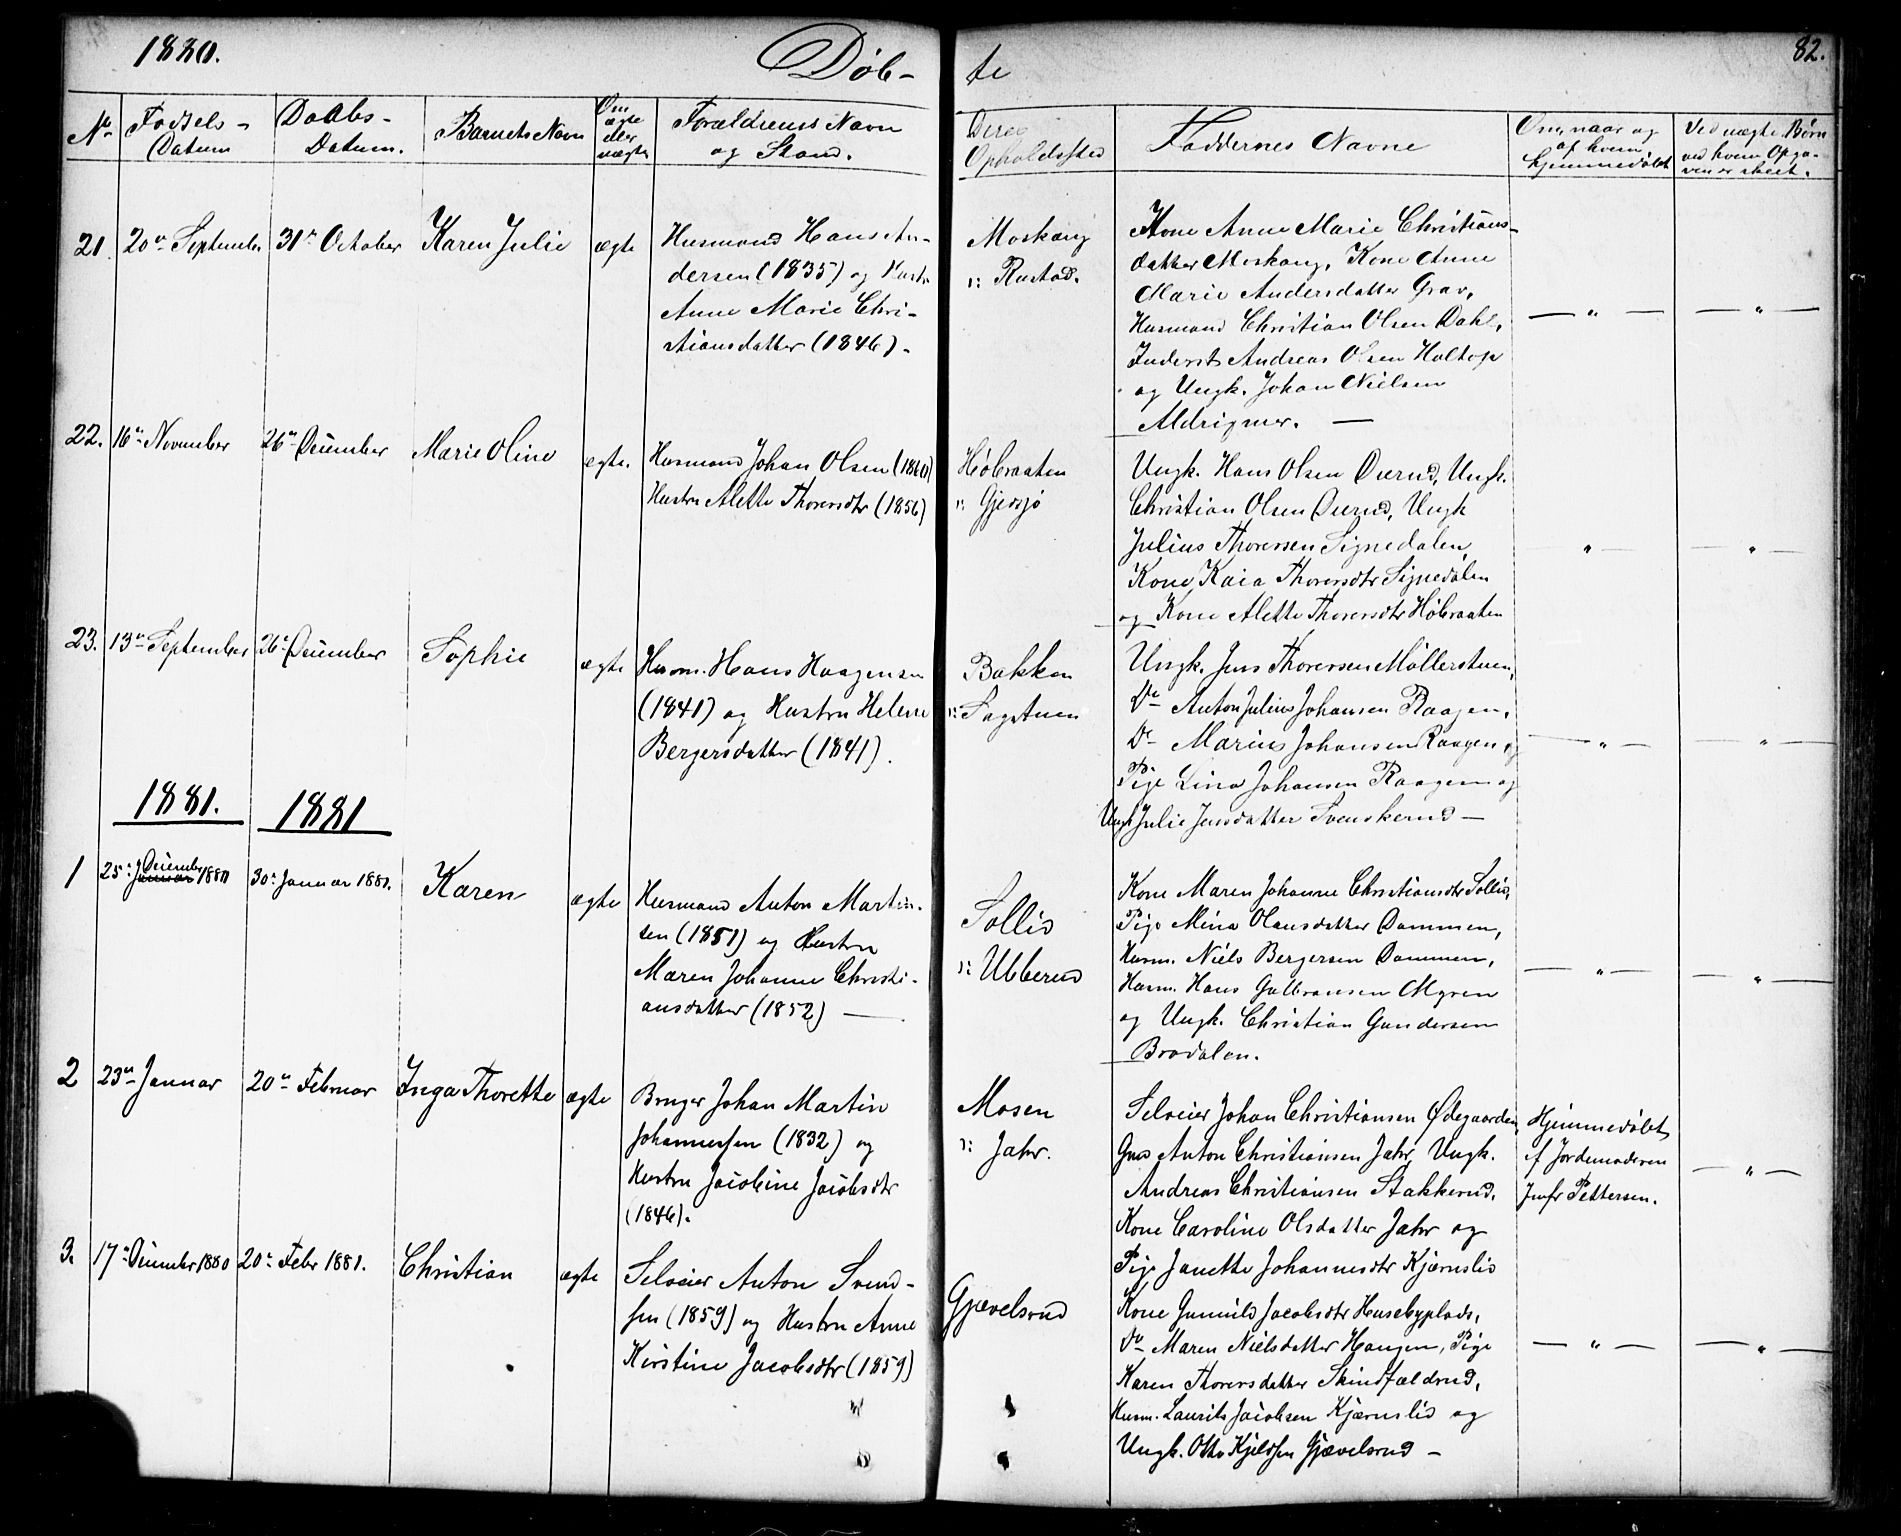 1880.
Døb-
te
82.
No
Fødsels-
Datum
Daabs-
Datum.
Barnets Navn
Om
ægte
eller
uægte
Forældrenes Navn
og Stand.
Deres
Opholdssted
Faddernes Navne
Om, naar og
af hvem
hjemmedøbt
Ved uægte Børn
ved hvem Opga-
ven er skeet.
21.
20de September
31te October
Karen Julie
ægte
Husmand Hans An-
dersen (1835) og Hustru
Anne Marie Chri-
stiansdatter (1846).
Moskoug
u: Rustad.
Kone Anne Marie Christians-
datter Moskoug, Kone Anne
Marie Andersdatter Grav,
Husmand Christian Olsen Dahl,
Inderst Andreas Olsen Holtop
og Ungk. Johan Nielsen
Aldrigmer. —
— " —
— " —
22.
16de November
26de December
Marie Oline
ægte.
Husmand Johan Olsen (1860)
Hustru Alette Thorersdtr (1856)
Høbraaten
u: Gjersjø
Ungk. Hans Olsen Durud, Ungk.
Christian Olsen Durud, Ungk
Julius Thorersen Signedalen,
Kone Kaia Thorersdtr Signedalen
og Kone Alette Thorersdtr Høbraaten
" —
— " —
23.
13de September
26de December
Sophie
ægte
Husm. Hans Haagensen
(1841) og Hustru Helene
Bergersdatter (1841).
Bakken
u: Sagstuen
Ungk. Jens Thorersen Møllerstuen,
Do Anton Julius Johansen Raagen,
Do Marius Johansen Raagen, og
Pige Lina Johansen Raagen og
Ungk Julie Jensdatter Svenskerud —
— " —
— " —
1881.
1881
1
25de Januar December 1880
30te Januar 1881.
Karen
ægte
Husmand Anton Martin-
sen (1851) og Hustru
Maren Johanne Christi-
ansdatter (1852) —
Sollid
u: Ubberud
Kone Maren Johanne Christiansdtr Sollid,
Pige Mina Olausdatter Dammen,
Husm. Niels Bergersen Dammen,
Husm. Hans Gulbransen Myren
og Ungk. Christian Gundersen
Bradalen.
— " —
— " —
2
23de Januar
20de Februar
Inga Thorette
ægte
Bruger Johan Martin
Johannessen (1832) og
Hustru Jacobine Jacobsdtr
(1846).
Mosen
u: Jahr.
Selveier Johan Christiansen Ødegaarden,
Grd Anton Christiansen Jahr, Ungk.
Andreas Christiansen Stakkerud,
Kone Caroline Olsdatter Jahr og
Pige Janette Johannesdtr Kjærnslid
Hjemmedøbt
af Jordemoderen
Jmfr Pettersen.
— " —
3.
17de December 1880
20de Febr 1881.
Christian
ægte
Selveier Anton Svend-
sen (1859) og Hustru Anne
Kirstine Jacobsdtr (1859)
Gjævelsrud
Kone Gunnild Jacobsdtr Husebyplads,
Do Maren Nielsdatter Haugen, Pige
Karen Thorersdatter Skindfældrud,
Husm. Laurits Jacobsen Kjærnslid og
Ungk. Otto Kjeldsen Gjævelsrud —
— " —
— " —